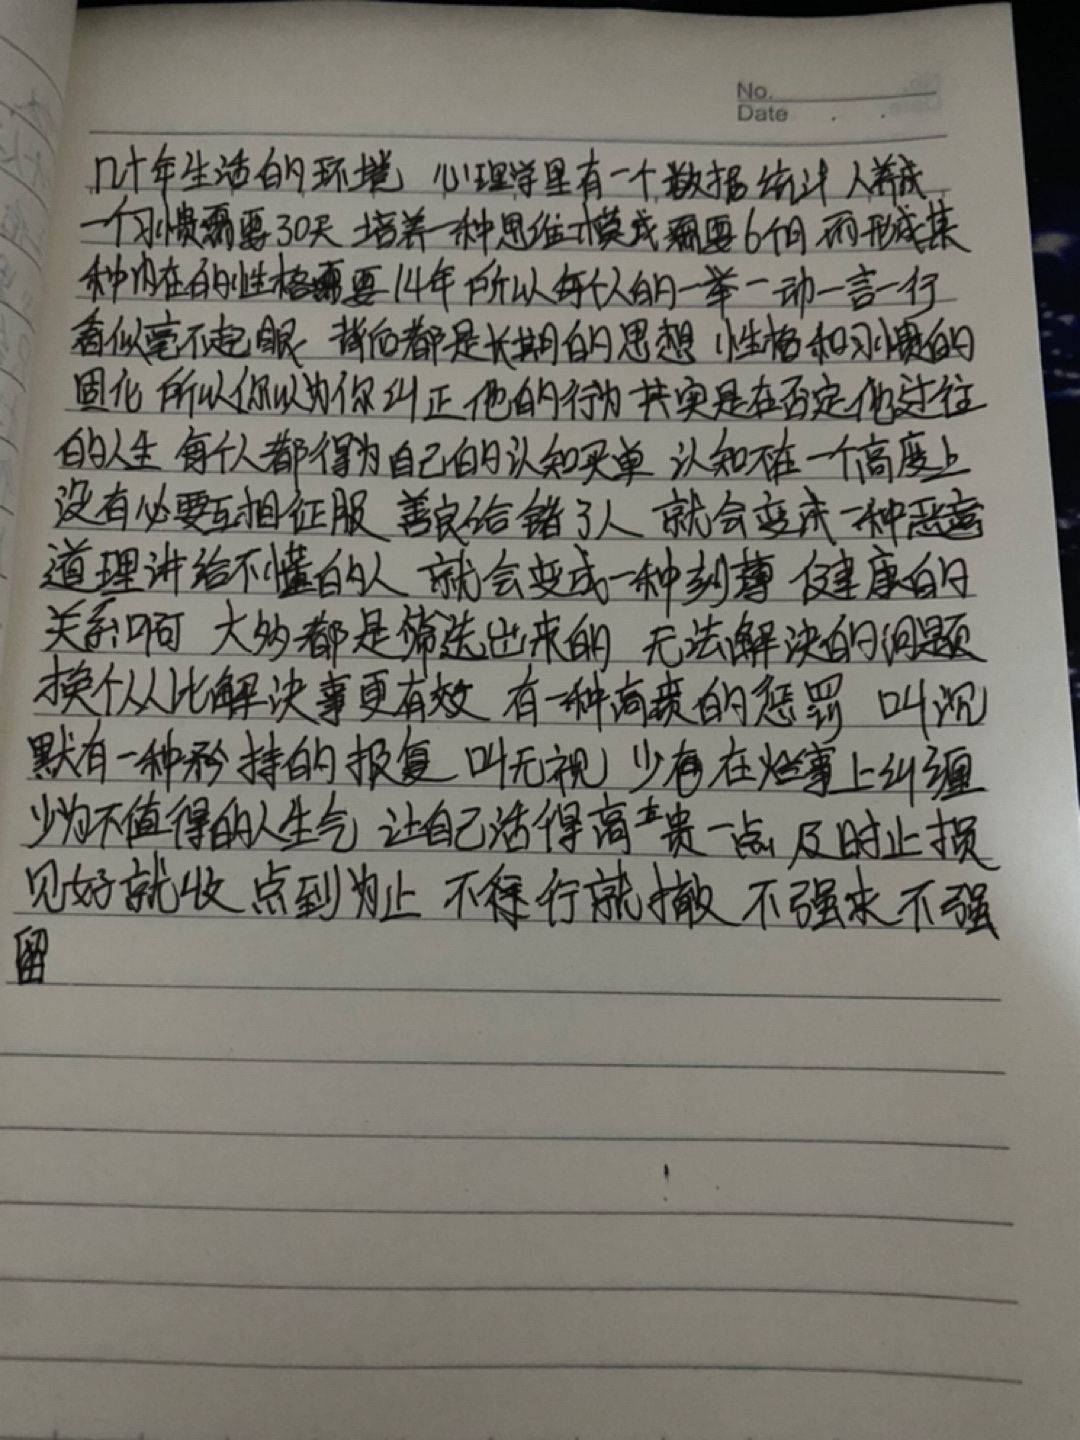 No.
Date
几十年生活的环境 心理学里有一个数据统计 人养成
一个习惯需要30天 培养一种思维模式需要6个月 而形成某
种内在的性格需要14年 所以每个人的一举一动一言一行
看似毫不起眼 背后都是长期的思想 性格和习惯的
固化 所以你以为你纠正他的行为 其实是在否定他过往
的人生 每个人都得为自己的认知买单 认知不在一个高度上
没有必要互相征服 善良给错了人 就会变成一种恶意
道理讲给不懂的人 就会变成一种刻薄 健康的
关系啊 大多都是筛选出来的 无法解决的问题
换个人比解决事更有效 有一种高贵的惩罚 叫沉
默有一种矜持的报复 叫无视 少有在烂事上纠缠
少为不值得的人生气 让自己活得高贵一点 及时止损
见好就收 点到为止 不得行就撤 不强求不强
留